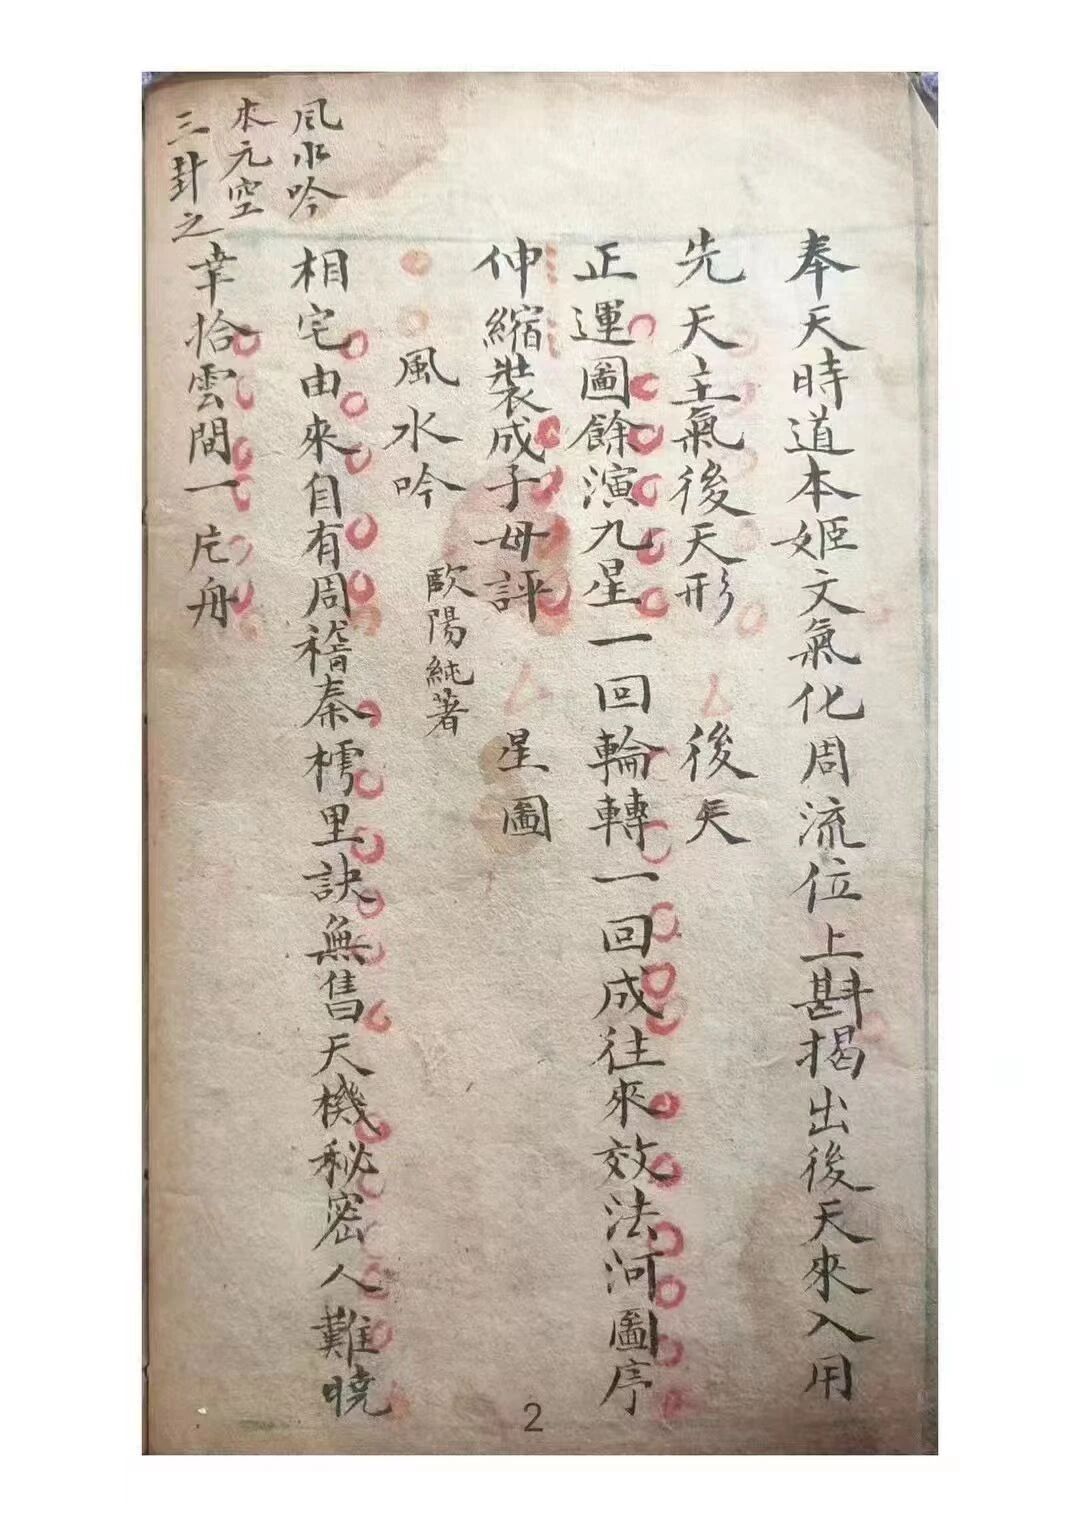 奉天時道本姬文氣化周流位上斟揭出後天來入用
先天主氣後天形　後天
正運圖餘演九星一回輪轉一回成往來效法河圖序
伸縮裝成子母評　星圖
風水吟
歐陽純著
相宅由來自有周稽秦樗里訣無售天機秘密人難曉
幸拾雲間一片舟
風水吟
本元空
三卦之
2